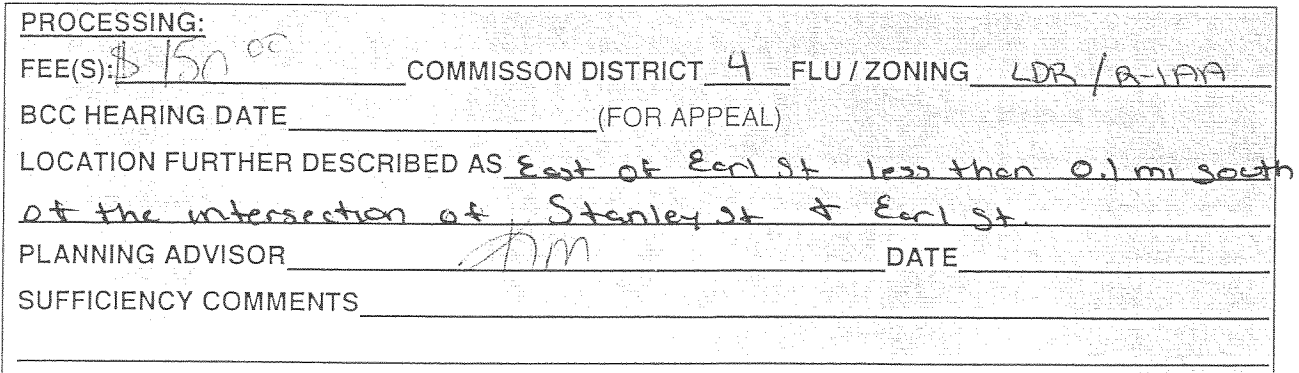 PROCESSING:
FEE(S): $ 150 00 COMMISSON DISTRICT 4 FLU / ZONING LDR / R-1AA
BCC HEARING DATE (FOR APPEAL)
LOCATION FURTHER DESCRIBED AS East of Earl St less than 0.1 mi south
of the intersection of Stanley St & Earl St.
PLANNING ADVISOR DATE
SUFFICIENCY COMMENTS